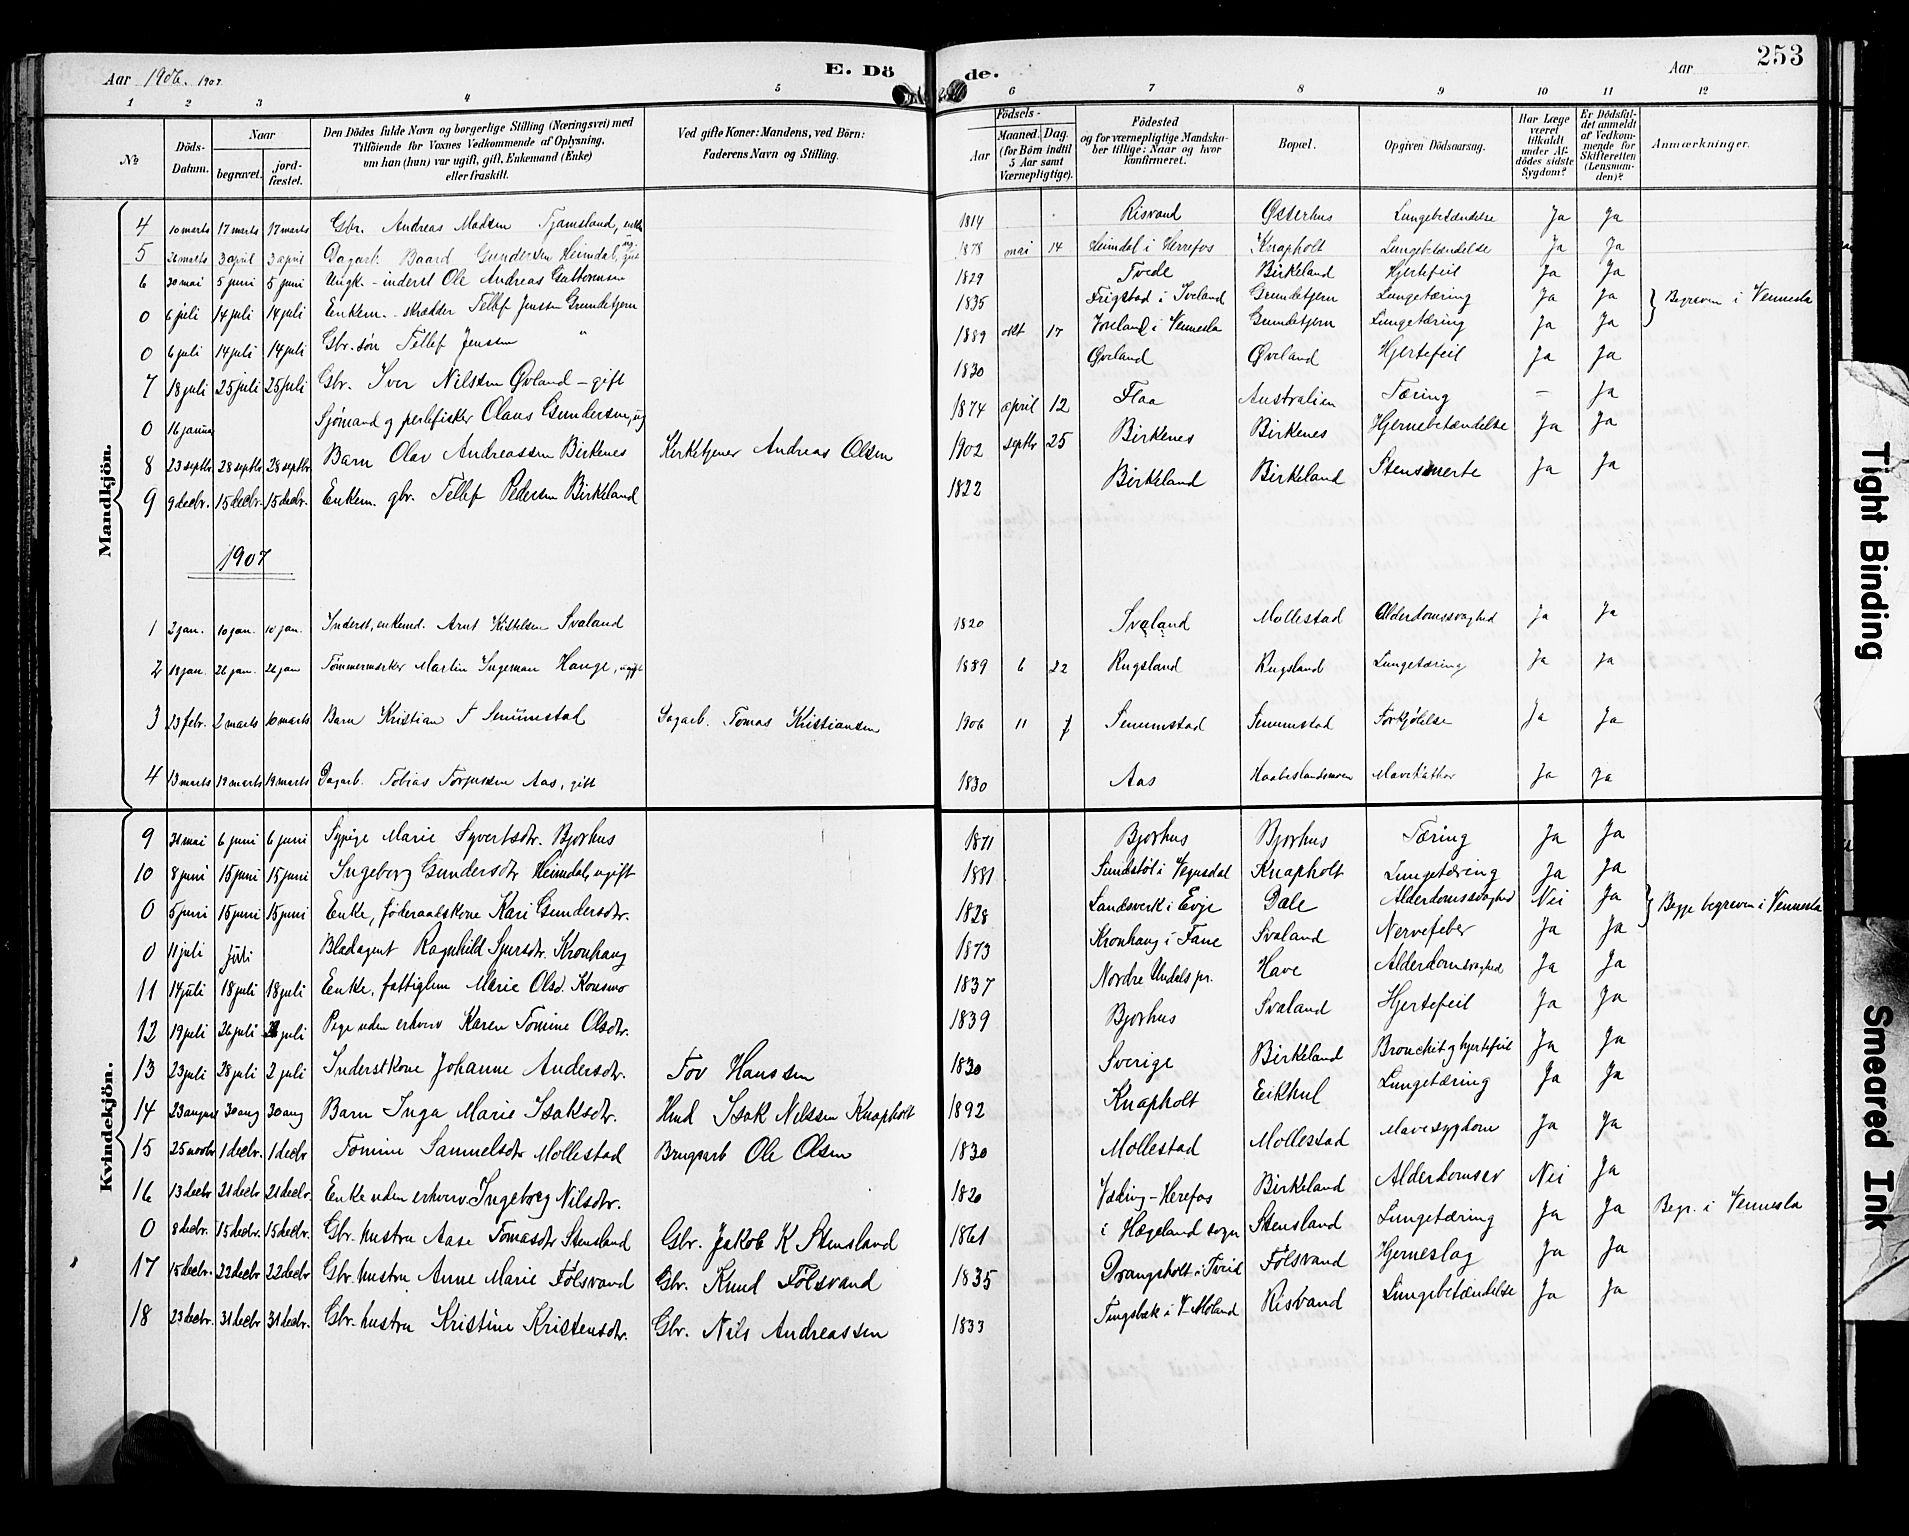 Aar 1906. 1907
E. Dö de.
Aar
253
1 2 3 4 5 6 7 8 9 10 11 12
No
Döds-Datum.
Naar
begravet.
jord-fæstet.
Den Dödes fulde Navn og borgerlige Stilling (Næringsvei) med
Tilföiende for Voxnes Vedkommende af Oplysning,
om han (hun) var ugift, gift, Enkemand (Enke)
eller fraskilt.
Ved gifte Koner: Mandens, ved Börn:
Faderens Navn og Stilling.
Födsels-
Aar
Maaned. Dag.
(for Börn indtil
5 Aar samt
Værnepligtige).
Födested
og for værnepligtige Mandska-
ber tillige: Naar og hvor
konfirmeret.
Bopæl.
Opgiven Dödsaarsag.
Har Læge
været
tilkaldt
under Af-
dödes sidste
Sygdom?
Er Dödsfal-
det anmeldt
af Vedkom-
mende for
Skifteretten
(Lensman-
den)?
Anmærkninger.
Mandkjön.
4 10 marts 17 marts 17 marts Gbr. Andreas Madsen Tjamsland, enkem 1814 Risvand Østerhus Lungebetændelse Ja Ja
5 26 marts 3 april 3 april Dagarb. Baard Gundersen Heimdal, ugift 1878 mai 14 Heimdal i Herrefos Knapholt Lungebetændelse Ja Ja
6 30 mai 5 juni 5 juni Ungk. - inderst Ole Andreas Guttormsen 1829 Tvede Birkeland Hjertefeil Ja Ja
0 6 juli 14 juli 14 juli Enkem. - skrædder Tellef Jensen Grundetjern 1835 Frigstad i Iveland Grundetjern Lungetæring Ja Ja } Begraven i Vennesla
0 6 juli 14 juli 14 juli Gbr. søn Tellef Jensen " 1889 okt 17 Joreland i Vennesla Grundetjern Lungetæring Ja Ja
7 18 juli 25 juli 25 juli Gbr. Iver Nilssen Øvland - gift 1830 Øveland Øveland Hjertefeil Ja Ja
0 16 januar Sjømand og perlefisker Olaus Gundersen, ug 1874 april 12 Flaa Australien Tæring — Ja
8 23 septbr 28 septbr 28 septbr Barn Olav Andreassen Birkenes Kirketjener Andreas Olsen 1902 septbr 25 Birkenes Birkenes Hjernebetændelse Ja Ja
9 9 decbr. 15 decbr. 15 decbr. Enkem. gbr. Tellef Pedersen Birkeland 1822 Birkeland Birkeland Stensmerte Ja Ja
1907
1 2 jan. 10 jan. 10 jan. Inderst, enkemd. Arnt Kittelsen Svaland 1820 Svaland Mollestad Alderdomssvaghed Ja Ja
2 18 jan. 26 jan. 26 jan Tømmermerker Martin Ingeman Hauge, ugift 1889 6 22 Rugsland Rugsland Lungetæring Ja Ja
3 23 febr. 2 marts 10 marts Barn Kristian T Senumstad Dagarb. Tomas Kristiansen 1906 11 Senumstad Senumstad Forkjølelse Ja Ja
4 13 marts 19 marts 19 marts Dagarb. Tobias Torjussen Aas, gift 1830 Aas Haabeslandsmoen Mavekathar Ja Ja
Kvindekjön.
9 31 mai 6 juni 6 juni Sypige Marie Syvertsdtr. Bjorhus 1871 Bjorhus Bjorhus Tæring Ja Ja
10 8 juni 15 juni 15 juni Ingeborg Gundersdtr Heimdal, ugift 1881 Sundstøl i Vegusdal Knapholt Lungetæring Ja Ja
0 5 juni 15 juni 15 juni Enke, føderaadskone Kari Gundersdtr. 1828 Landsverk i Evje Dale Alderdomssvaghed Nei Ja } Begge begraven i Vennesla
0 11 juli juli Bladagent Ragnhild Sjursdtr. Kronhaug 1873 Kronhaug i Fane Svaland Nervefeber Ja Ja
11 14 juli 18 juli 18 juli Enke, fattiglem Marie Olsd. Konsmo 1837 Nordre Undals pr. Have Alderdomssvaghed Ja Ja
12 19 juli 26 juli juli Pige uden erhverv Karen Tomine Olsdtr. 1839 Bjorhus Svaland Hjertefeil Ja Ja
13 23 juli 28 juli 2 juli Inderstkone Johanne Andersdtr. Tov Hanssen 1830 Sverige Birkeland Bronchit og hjertefeil Ja Ja
14 23 august 30 aug 30 aug Barn Inga Marie Isaksdtr. Hmd Isak Nilssen Knapholt 1892 Knapholt Eikhul Lungetæring Ja Ja
15 25 novbr 1 decbr. 1 decbr Tomine Samuelsdtr Mollestad Brugsarb Ole Olsen 1830 Mollestad Mollestad Mavesygdom Ja Ja
16 13 decbr 21 decbr 21 decbr. Enke uden erhverv Ingeborg Nilsdtr. 1820 Væding - Herefos Birkeland Alderdomssv Nei Ja
0 8 decbr. 15 decbr. 15 decbr. Gbr. hustru Aase Tomasdtr Stensland Gbr. Jakob K Stensland 1861 i Hægeland sogn Stensland Lungetæring Ja Ja Begr. i Vennesla
17 15 decbr. 22 decbr 22 decbr Gbr. hustru Anne Marie Følsvand Gbr. Knud Følsvand 1835 Drangsholt i Tveid Følsvand Hjerneslag Ja Ja
18 23 decbr. 31 decbr 31 decbr. Gbr. hustru Kristine Kristensdtr. Gbr. Nils Andreassen 1833 Tingsbæk i V. Moland Risvand Lungebetændelse Ja Ja
Tight Binding
Smeared Ink